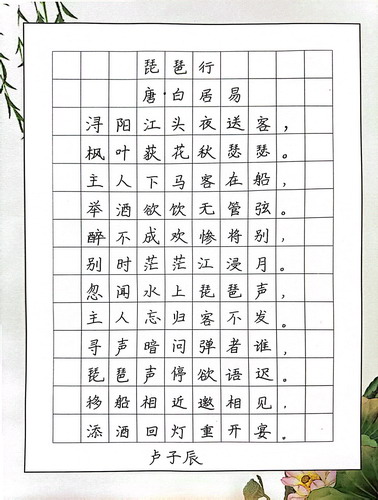 琵琶行
唐·白居易
浔阳江头夜送客，
枫叶荻花秋瑟瑟。
主人下马客在船，
举酒欲饮无管弦。
醉不成欢惨将别，
别时茫茫江浸月。
忽闻水上琵琶声，
主人忘归客不发。
寻声暗问弹者谁，
琵琶声停欲语迟。
移船相近邀相见，
添酒回灯重开宴。
卢子辰